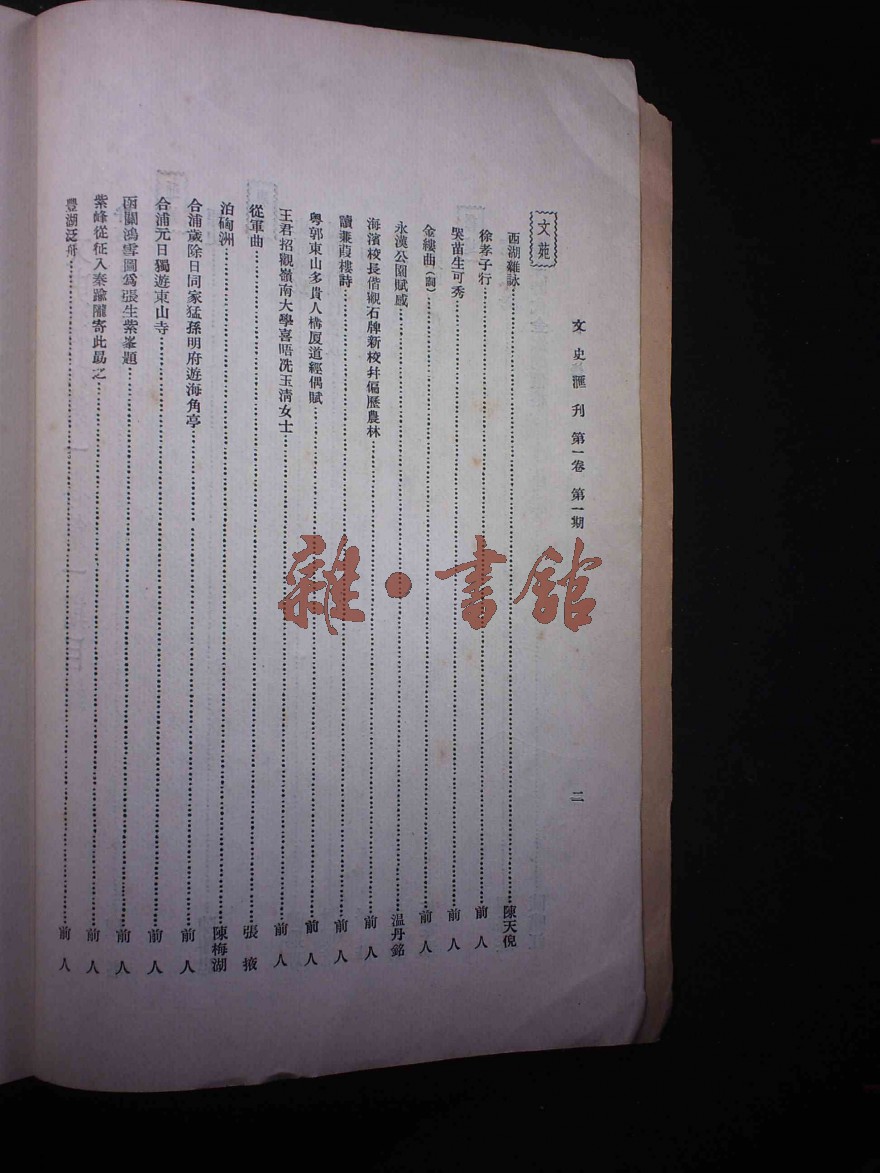 文史匯刊 第一卷 第一期 二
文苑
西湖雜詠 陳天倪
徐孝子行 前人
哭苗生可秀 前人
金縷曲(詞) 前人
永漢公園賦感 温丹銘
海濱校長偕觀石牌新校幷徧歷農林 前人
讀蒹葭樓詩 前人
粵郭東山多貴人構厦道經偶賦 前人
王君招觀嶺南大學喜晤冼玉清女士 前人
從軍曲 張掖
泊硇洲 陳梅湖
合浦歲除日同家猛孫明府遊海角亭 前人
合浦元日獨遊東山寺 前人
函關鴻雪圖爲張生紫峯題 前人
紫峰從征入秦踰隴寄此勗之 前人
豐湖泛舟 前人
雜·書館